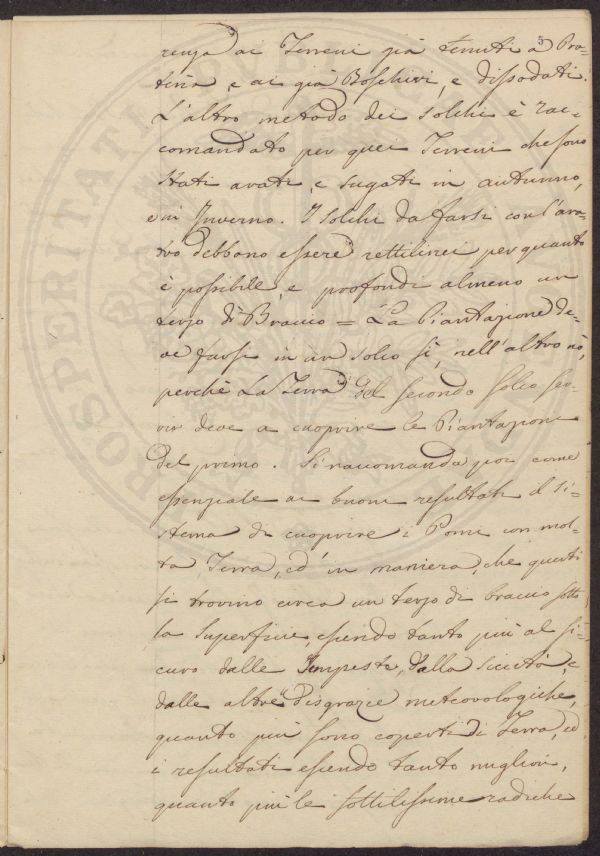 5
renza ai Terreni già tenuti a Pra=
teria e ai già Boschivi, e dissodati.
L'altro metodo dei solchi è rac=
comandato per quei Terreni che sono
stati arati, e sugati in autunno,
e in Inverno. I solchi da farsi con l'ara=
tro debbono essere rettilinei per quanto
è possibile, e profondi almeno un
terzo di Braccio = La Piantazione de=
ve farsi in un solco sì, nell'altro nò,
perchè La Terra del secondo solco ser=
vir deve a cuoprire le Piantazioni
del primo. Si raccomanda poi come
essenziale ai buoni resultati il si=
stema di cuoprire i Pomi con mol=
ta Terra, ed in maniera, che questi
si trovino circa un terzo di braccio sotto
la Superficie, essendo tanto più al si=
curo dalle Tempeste, dalla siccità, e
dalle altre disgrazie meteorologiche,
quanto più sono coperti di Terra, ed
i resultati essendo tanto migliori,
quanto più le sottilissime radiche
PROSPERITATI PUBLICAE